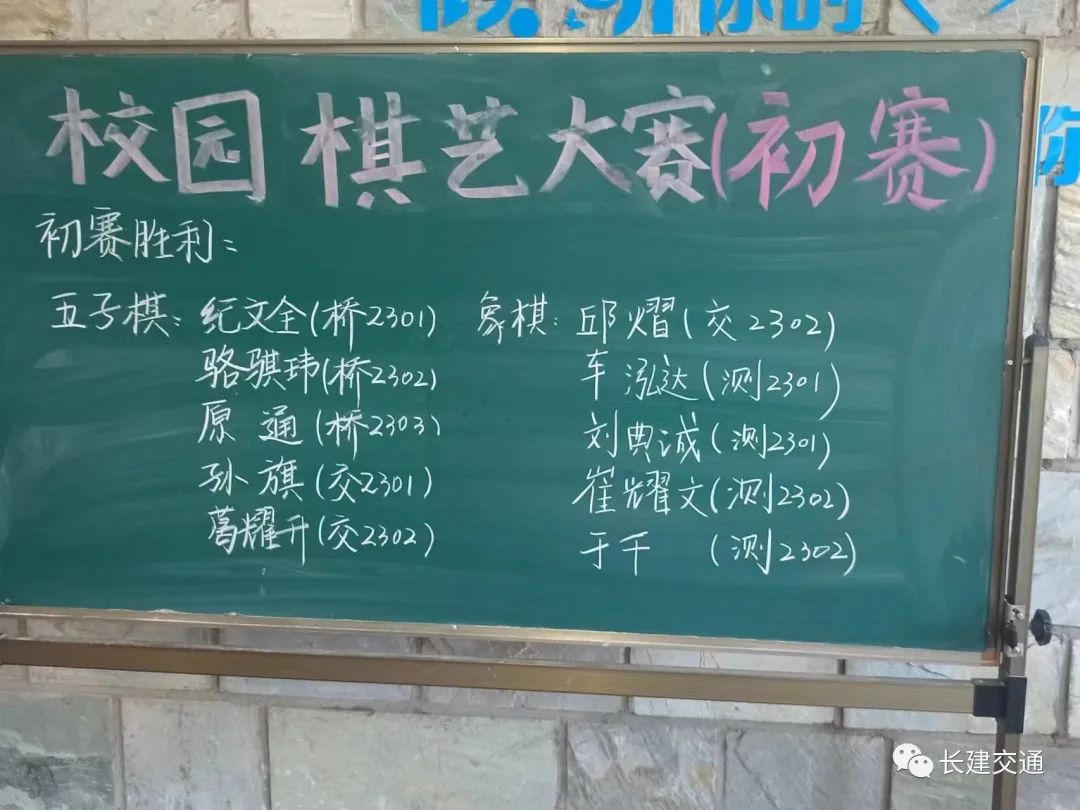 你的
你
校园棋艺大赛(初赛)
初赛胜利:
五子棋: 纪文全(桥2301) 象棋: 邱熠(交2302)
骆骐玮(桥2302) 车泓达(测2301)
原通(桥2303) 刘典诚(测2301)
孙旗(交2301) 崔耀文(测2302)
葛耀升(交2302) 于千 (测2302)
长建交通